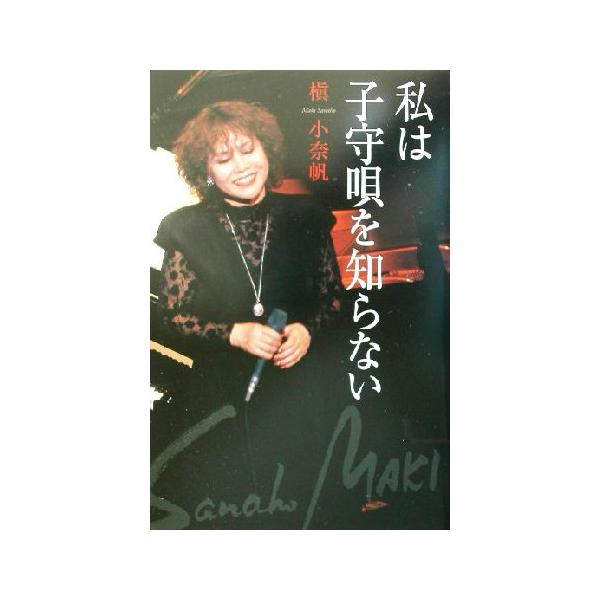 私は
子守唄を知らない
槇
Maki Sanaho
小奈帆
Sanaho MAKI